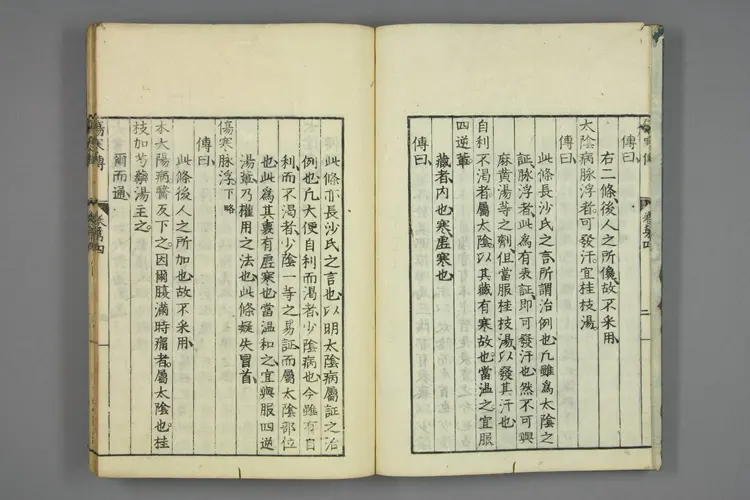 傳曰
右二條後人之所儳故不采用
太陰病脉浮者可發汗宜桂枝湯
傳曰
此條長沙氏之言所謂治例也凡雖爲太陰之
証脉浮者此爲有表証即可發汗也然不可與
麻黃湯等之劑但當服桂枝湯以發其汗也
自利不渴者屬太陰以其藏有寒故也當溫之宜服
四逆輩
傳曰
藏者内也寒虛寒也
此條亦長沙氏之言也以明太陰病屬証之治
例也凡大便自利而渴者少陰病也今雖有自
利而不渴者少陰一等之易証而屬太陰部位
也此爲其裏有虛寒也當溫和之宜與服四逆
湯輩乃權用之法也此條疑失冒首
傷寒脉浮下略
傳曰
此條後人之所加也故不采用
本太陽病醫反下之因爾腹滿時痛者屬太陰也桂
枝加芍藥湯主之
爾而通
傷寒傳
卷第四
二